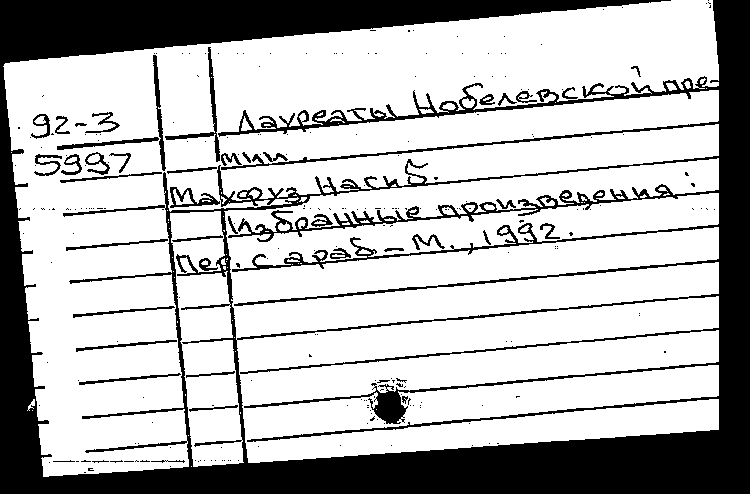 92-3 Лауреаты Нобелевской пре-
5997 мии.
Махфуз, Насиб.
Избранные произведения:
Пер. с араб – М., 1992.